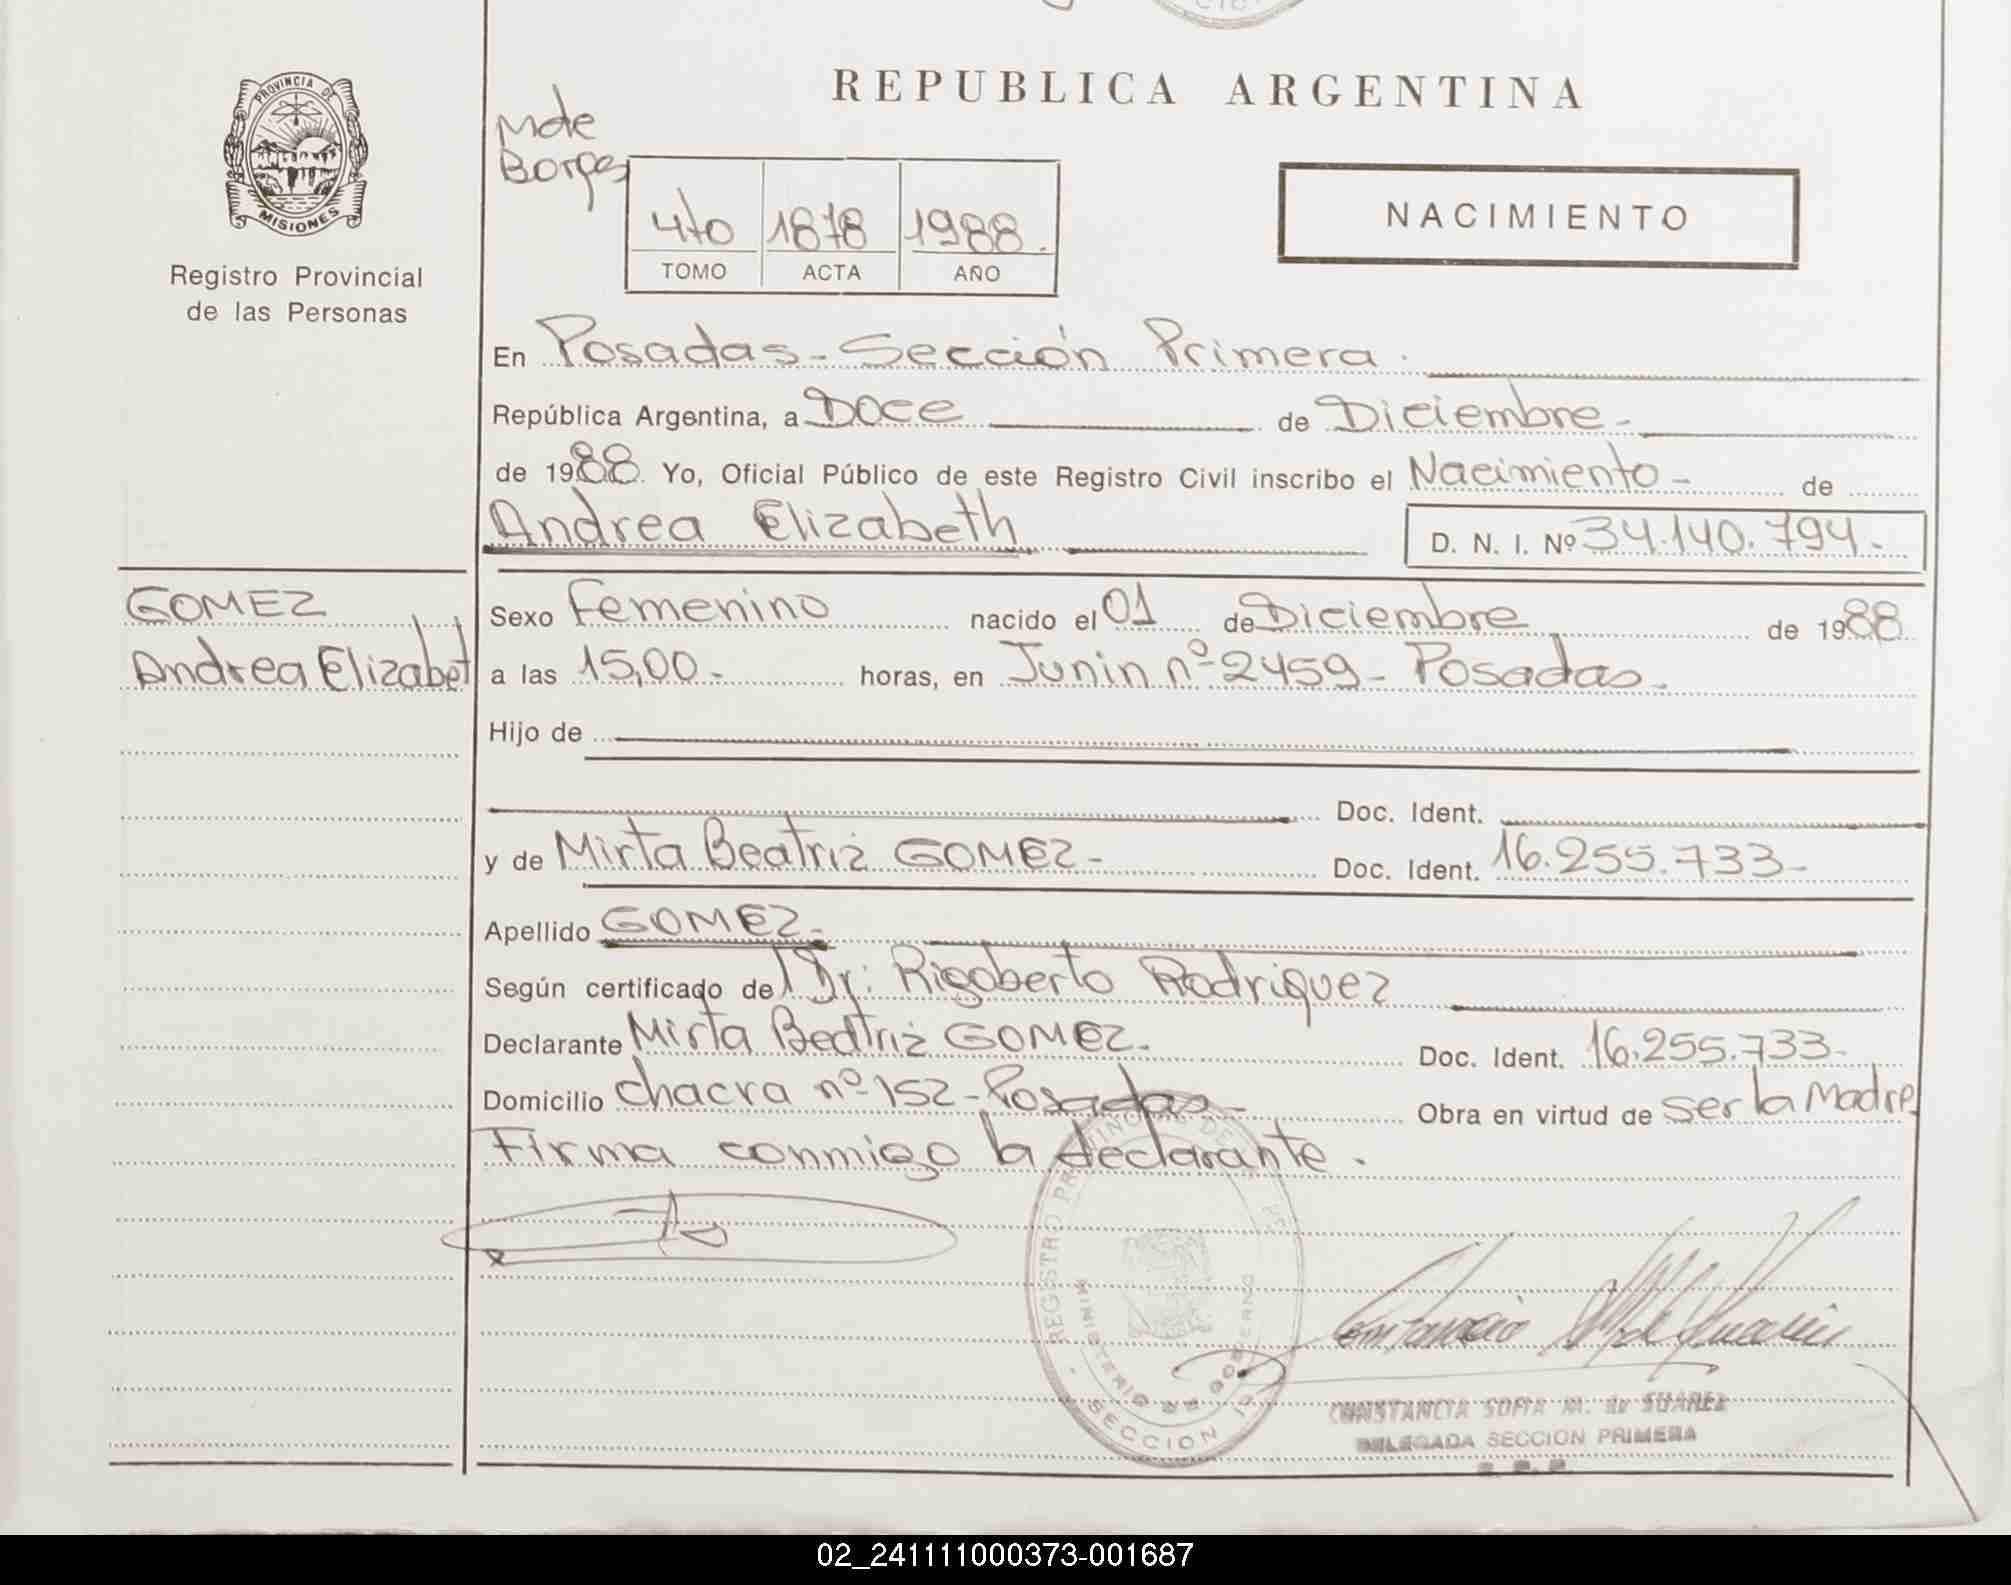 REPUBLICA ARGENTINA
PROVINCIA DE
MISIONES
Registro Provincial
de las Personas
Mde
Borges
4to 1878 1988.
TOMO ACTA AÑO
NACIMIENTO
En Posadas - Sección Primera.
República Argentina, a Doce de Diciembre -
de 1988. Yo, Oficial Público de este Registro Civil inscribo el Nacimiento - de
Andrea Elizabeth D. N. I. Nº 34.140.794.-
GOMEZ
Andrea Elizabeth
Sexo Femenino nacido el 01 de Diciembre de 1988
a las 15,00.- horas, en Junin nº 2459 - Posadas.
Hijo de
Doc. Ident.
y de Mirta Beatriz GOMEZ - Doc. Ident. 16.255.733-
Apellido GOMEZ.-
Según certificado del Dr: Rigoberto Rodriguez
Declarante Mirta Beatriz GOMEZ. Doc. Ident. 16.255.733-
Domicilio chacra nº 152 - Posadas - Obra en virtud de ser la Madre.
Firma conmigo la declarante.
REGISTRO DE
MINISTERIO DE GOBIERNO
SECCION
CONSTANCIA SOFIA M. de SUAREZ
DELEGADA SECCION PRIMERA
02_241111000373-001687